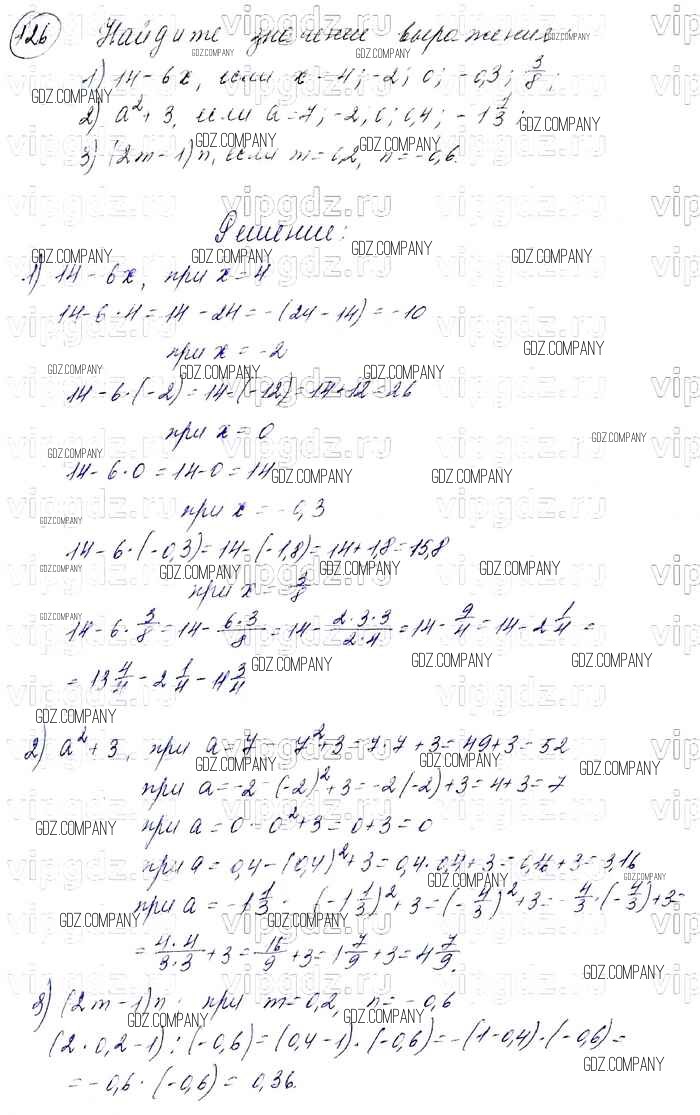 126 Найдите значение выражения
1) 14 - 6x, если x = 4; -2; 0; -0,3; 3/8;
2) a² + 3, если a = 7; -2; 0; 0,4; -1 1/3;
3) (2m - 1)n, если m = 0,2, n = -0,6.
Решение:
1) 14 - 6x, при x = 4
14 - 6 · 4 = 14 - 24 = -(24 - 14) = -10
при x = -2
14 - 6 · (-2) = 14 - (-12) = 14 + 12 = 26
при x = 0
14 - 6 · 0 = 14 - 0 = 14
при x = -0,3
14 - 6 · (-0,3) = 14 - (-1,8) = 14 + 1,8 = 15,8
при x = 3/8
14 - 6 · 3/8 = 14 - 6·3/8 = 14 - 2·3·3/2·4 = 14 - 9/4 = 14 - 2 1/4 =
= 13 4/4 - 2 1/4 = 11 3/4
2) a² + 3, при a = 7 - 7² + 3 = 7 · 7 + 3 = 49 + 3 = 52
при a = -2 - (-2)² + 3 = -2(-2) + 3 = 4 + 3 = 7
при a = 0 - 0² + 3 = 0 + 3 = 0
при a = 0,4 - (0,4)² + 3 = 0,4 · 0,4 + 3 = 0,16 + 3 = 3,16
при a = -1 1/3 - (-1 1/3)² + 3 = (-4/3)² + 3 = -4/3 · (-4/3) + 3 =
= 4·4/3·3 + 3 = 16/9 + 3 = 1 7/9 + 3 = 4 7/9.
3) (2m - 1)n, при m = 0,2, n = -0,6
(2 · 0,2 - 1) · (-0,6) = (0,4 - 1) · (-0,6) = -(1 - 0,4) · (-0,6) =
= -0,6 · (-0,6) = 0,36.
GDZ.COMPANY
vipgdz.ru